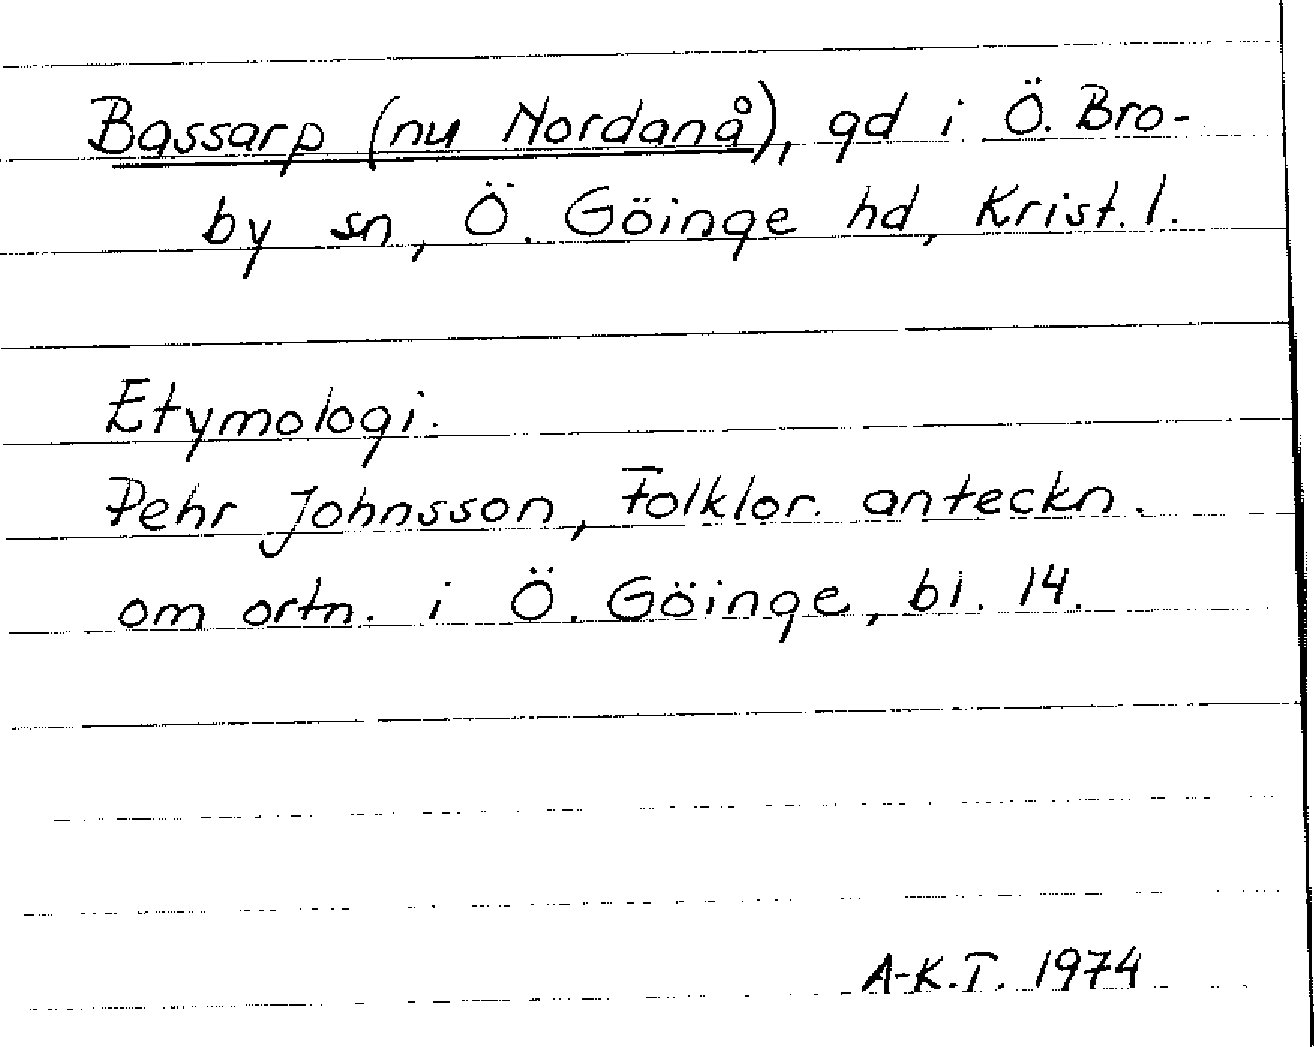 Bassarp (nu Nordanå), gd i Ö. Bro-
by sn, Ö. Göinge hd, Krist. l.
Etymologi.
Pehr Johnsson, Folklor. anteckn.
om ortn. i Ö. Göinge, bl. 14.
A-K.T. 1974